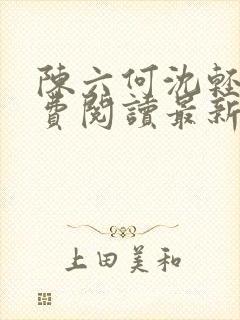 陳六何沈輕
費閱讀最新
上田美和